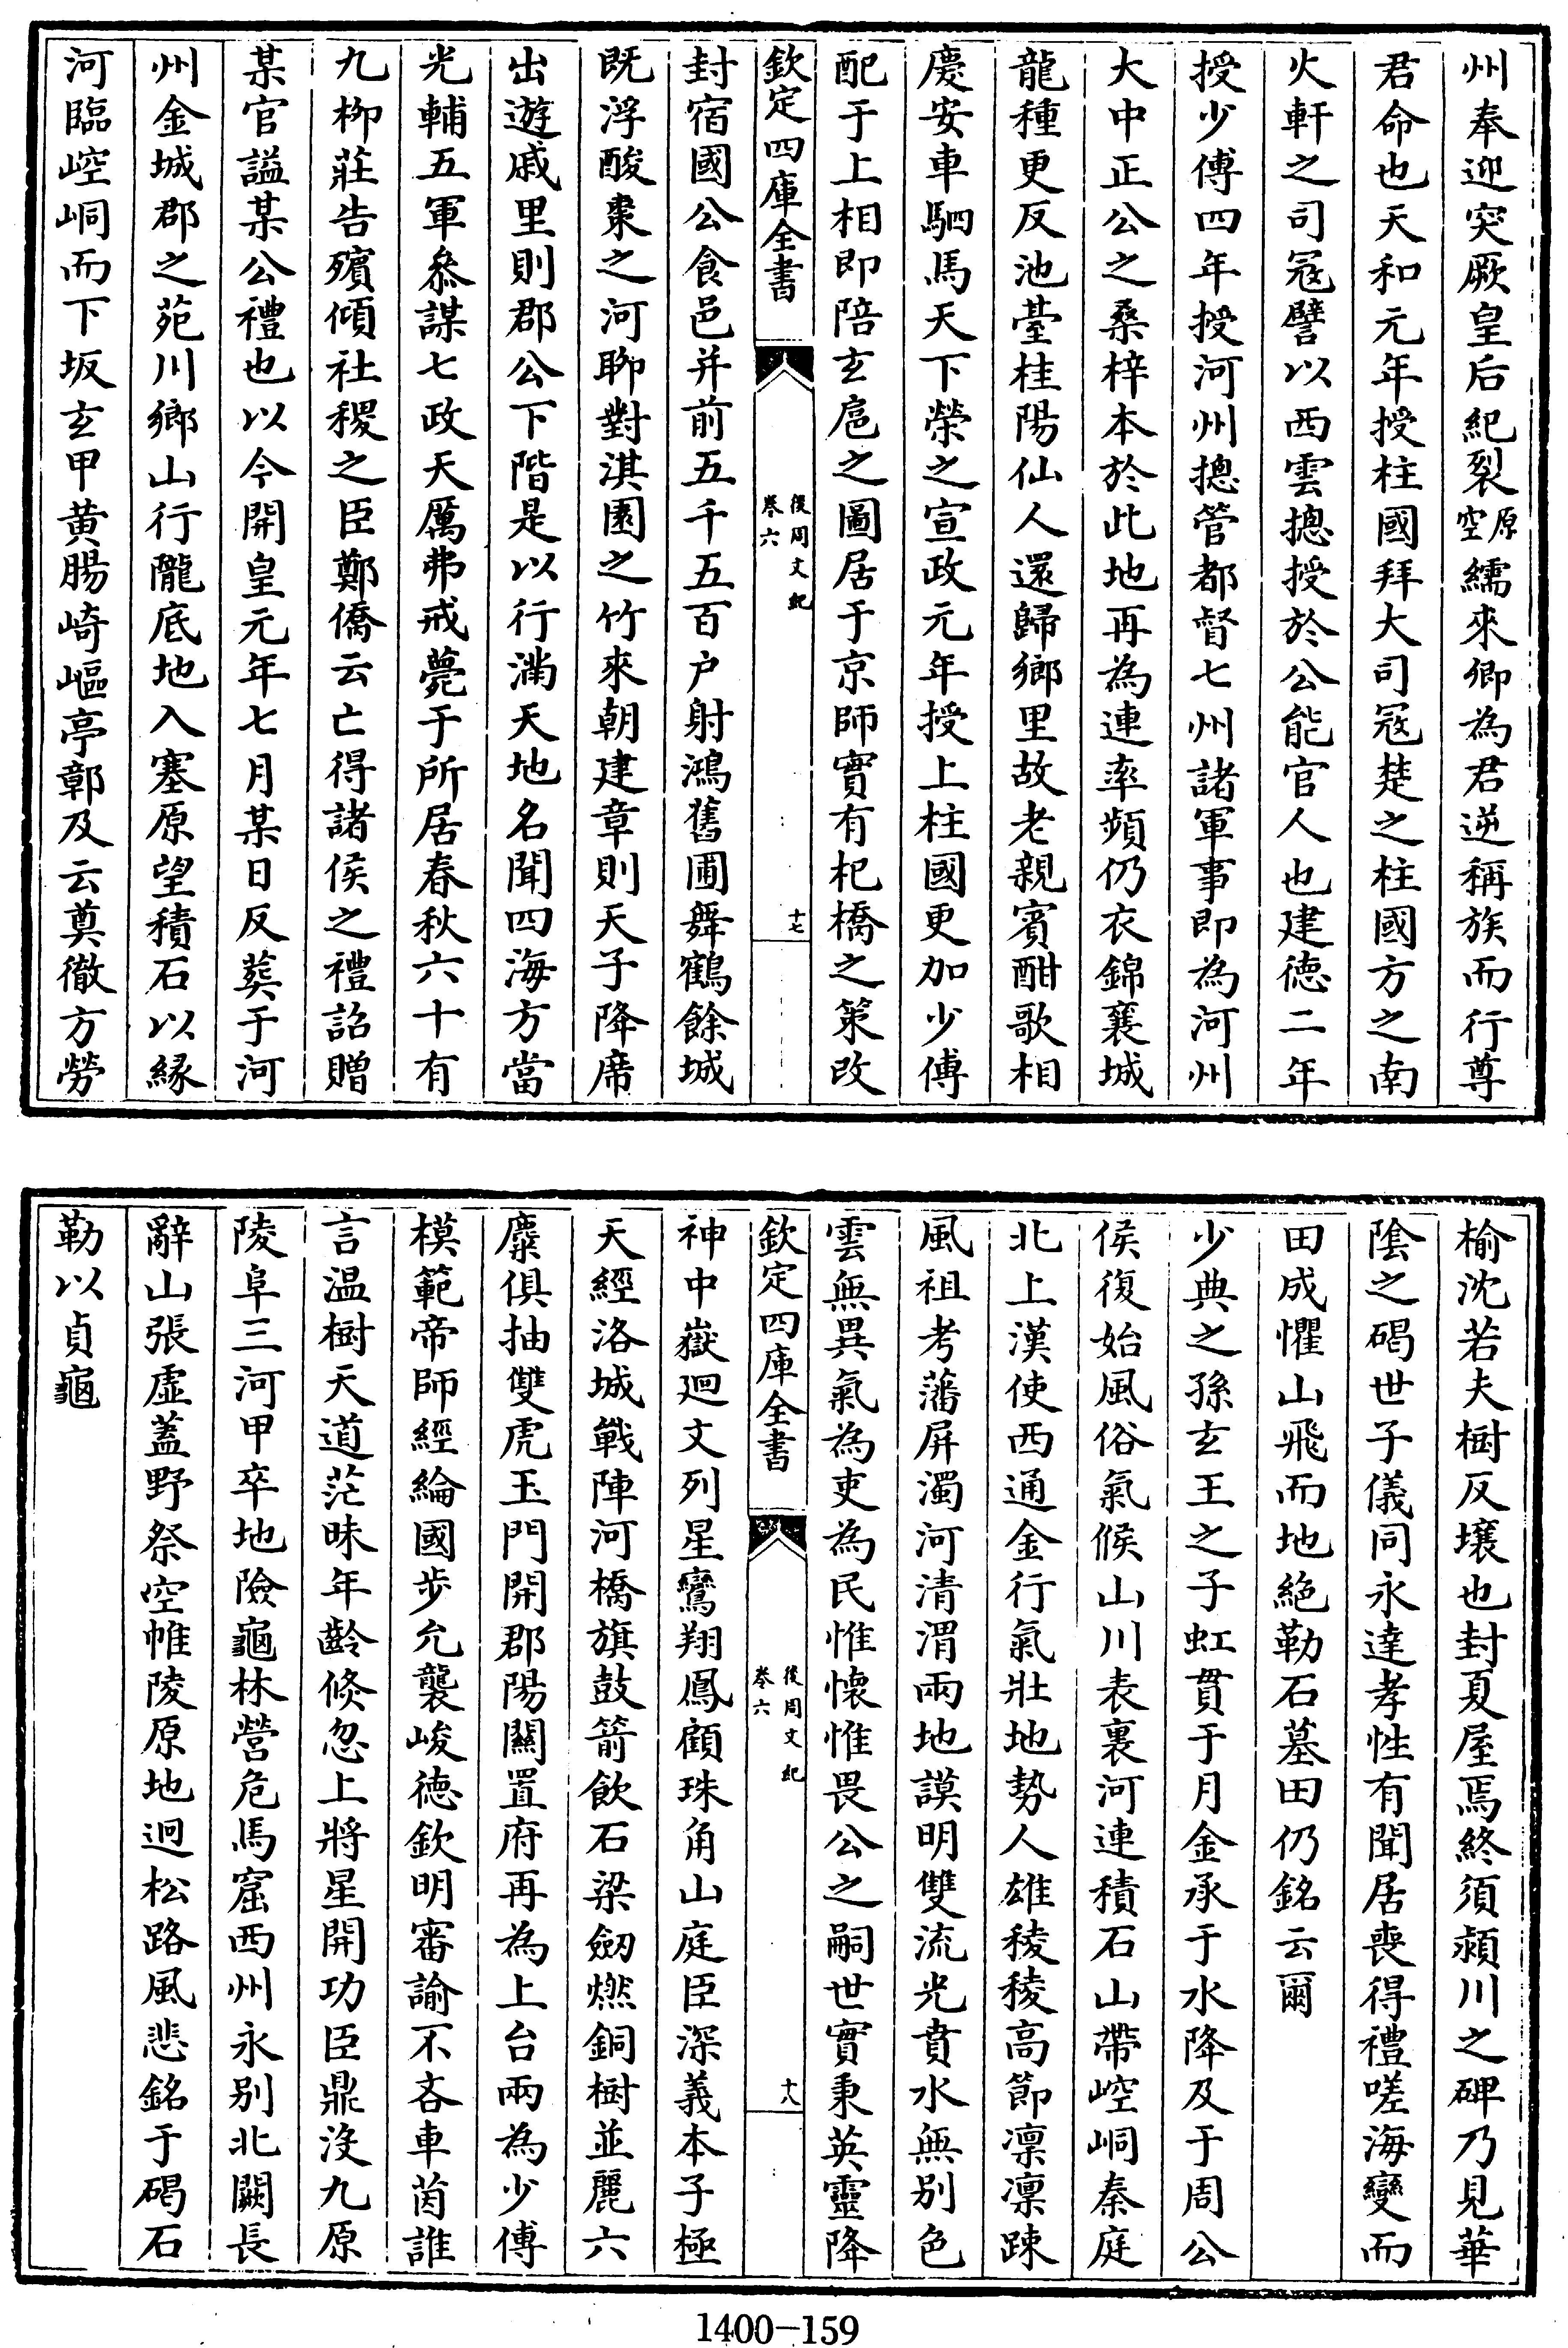 州奉迎突厥皇后紀裂原空繻來卿為君逆稱族而行尊
君命也天和元年授柱國拜大司冦楚之柱國方之南
火軒之司冦譬以西雲摠授於公能官人也建德二年
授少傅四年授河州摠管都督七州諸軍事即為河州
大中正公之桑梓本於此地再為連率頻仍衣錦襄城
龍種更反池臺桂陽仙人還歸鄉里故老親賓酣歌相
慶安車駟馬天下榮之宣政元年授上柱國更加少傅
配于上相即陪玄扈之圖居于京師實有杞橋之策改
欽定四庫全書
後周文紀
卷六
十七
封宿國公食邑并前五千五百户射鴻舊圃舞鶴餘城
既浮酸棗之河聊對淇園之竹來朝建章則天子降席
出遊戚里則郡公下階是以行滿天地名聞四海方當
光輔五軍叅謀七政天厲弗戒薨于所居春秋六十有
九柳莊告殯傾社稷之臣鄭僑云亡得諸侯之禮詔贈
某官謚某公禮也以今開皇元年七月某日反葬于河
州金城郡之苑川鄉山行隴底地入塞原望積石以縁
河臨崆峒而下坂玄甲黄腸崎嶇亭鄣及云奠徹方勞
榆沈若夫樹反壤也封夏屋焉終須潁川之碑乃見華
隂之碣世子儀同永達孝性有聞居喪得禮嗟海變而
田成懼山飛而地絶勒石墓田仍銘云爾
少典之孫玄王之子虹貫于月金承于水降及于周公
侯復始風俗氣候山川表裏河連積石山帶崆峒秦庭
北上漢使西通金行氣壯地勢人雄稜稜高節凛凛踈
風祖考藩屏濁河清渭兩地謨明雙流光賁水無别色
雲無異氣為吏為民惟懷惟畏公之嗣世實秉英靈降
欽定四庫全書
後周文紀
卷六
十八
神中嶽廻文列星鸞翔鳳顧珠角山庭臣深義本子極
天經洛城戰陣河橋旗鼓箭飲石梁劒燃銅樹並麗六
麋俱抽雙虎玉門開郡陽關置府再為上台兩為少傅
模範帝師經綸國步允襲峻德欽明審諭不吝車茵誰
言温樹天道茫昧年齡倐忽上將星開功臣鼎沒九原
陵阜三河甲卒地險龜林營危馬窟西州永别北闕長
辭山張虛蓋野祭空帷陵原地迥松路風悲銘于碣石
勒以貞龜
1400-159